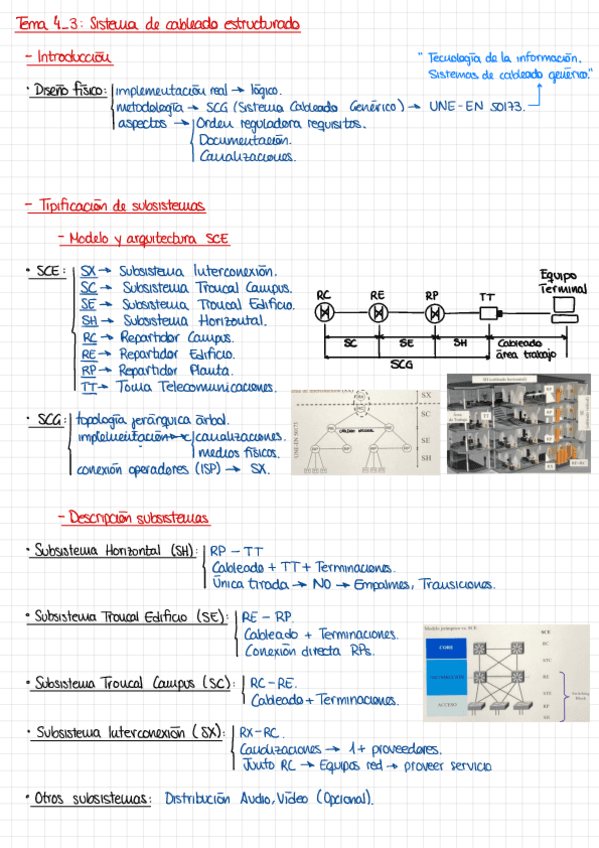 Tema 4_3: Sistema de cableado estructurado
- Introducción
"Tecnología de la información.
Sistemas de cableado genérico."
· Diseño físico: implementación real → lógico.
metodología → SCG (Sistema Cableado Genérico) → UNE-EN 50173.
aspectos → Orden reguladora requisitos.
Documentación.
Canalizaciones.
- Tipificación de subsistemas
- Modelo y arquitectura SCE
· SCE: SX → Subsistema Interconexión.
SC → Subsistema Troncal Campus.
SE → Subsistema Troncal Edificio.
SH → Subsistema Horizontal.
RC → Repartidor Campus.
RE → Repartidor Edificio.
RP → Repartidor Planta.
TT → Toma Telecomunicaciones.
Equipo
Terminal
RC RE RP TT
SC SE SH Cableado
área trabajo
SCG
· SCG: topología jerárquica árbol.
implementación → canalizaciones.
medios físicos.
conexión operadores (ISP) → SX.
SX
SC
SE
SH
UNE-EN 50173
TT
RP
RP
RP
RE-RC
- Descripción subsistemas
· Subsistema Horizontal (SH): RP - TT
Cableado + TT + Terminaciones.
Única tirada → NO → Empalmes, Transiciones.
· Subsistema Troncal Edificio (SE): RE - RP.
Cableado + Terminaciones.
Conexión directa RPs.
· Subsistema Troncal Campus (SC): RC-RE.
Cableado + Terminaciones.
· Subsistema Interconexión (SX): RX-RC.
Canalizaciones → 1+ proveedores.
Junto RC → Equipos red → proveer servicio
· Otros subsistemas: Distribución Audio, Vídeo (Opcional).
Modelo jerárquico vs. SCE
SCE
CORE
RC
DISTRIBUCIÓN
RE
ACCESO
RP
SH
Switching
Block